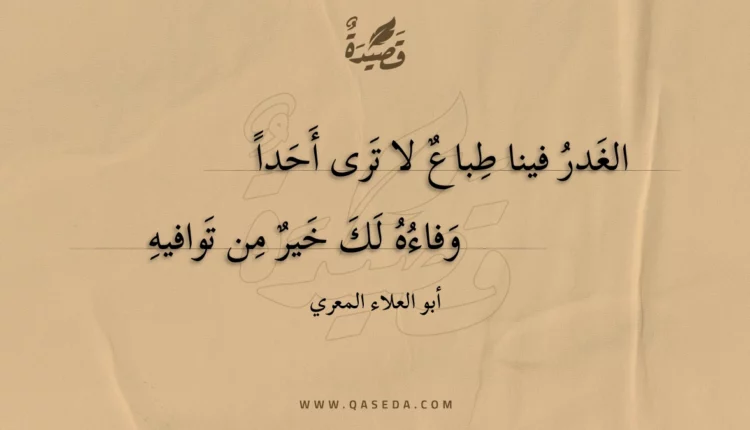 قَصِيدَةٌ
الغَدرُ فينا طِباعٌ لا تَرى أَحَداً
وَفاءُهُ لَكَ خَيرٌ مِن تَوافيهِ
أبو العلاء المعري
WWW.QASEDA.COM